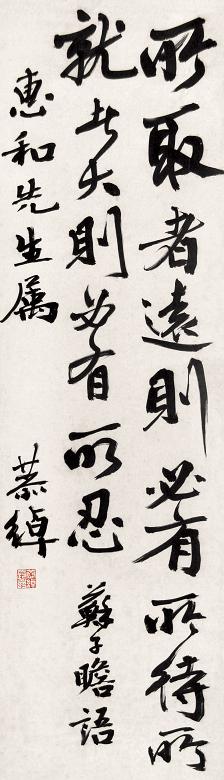 所取者遠則必有所待所
就者大則必有所忍 蘇子瞻語
惠和先生属 慕綽